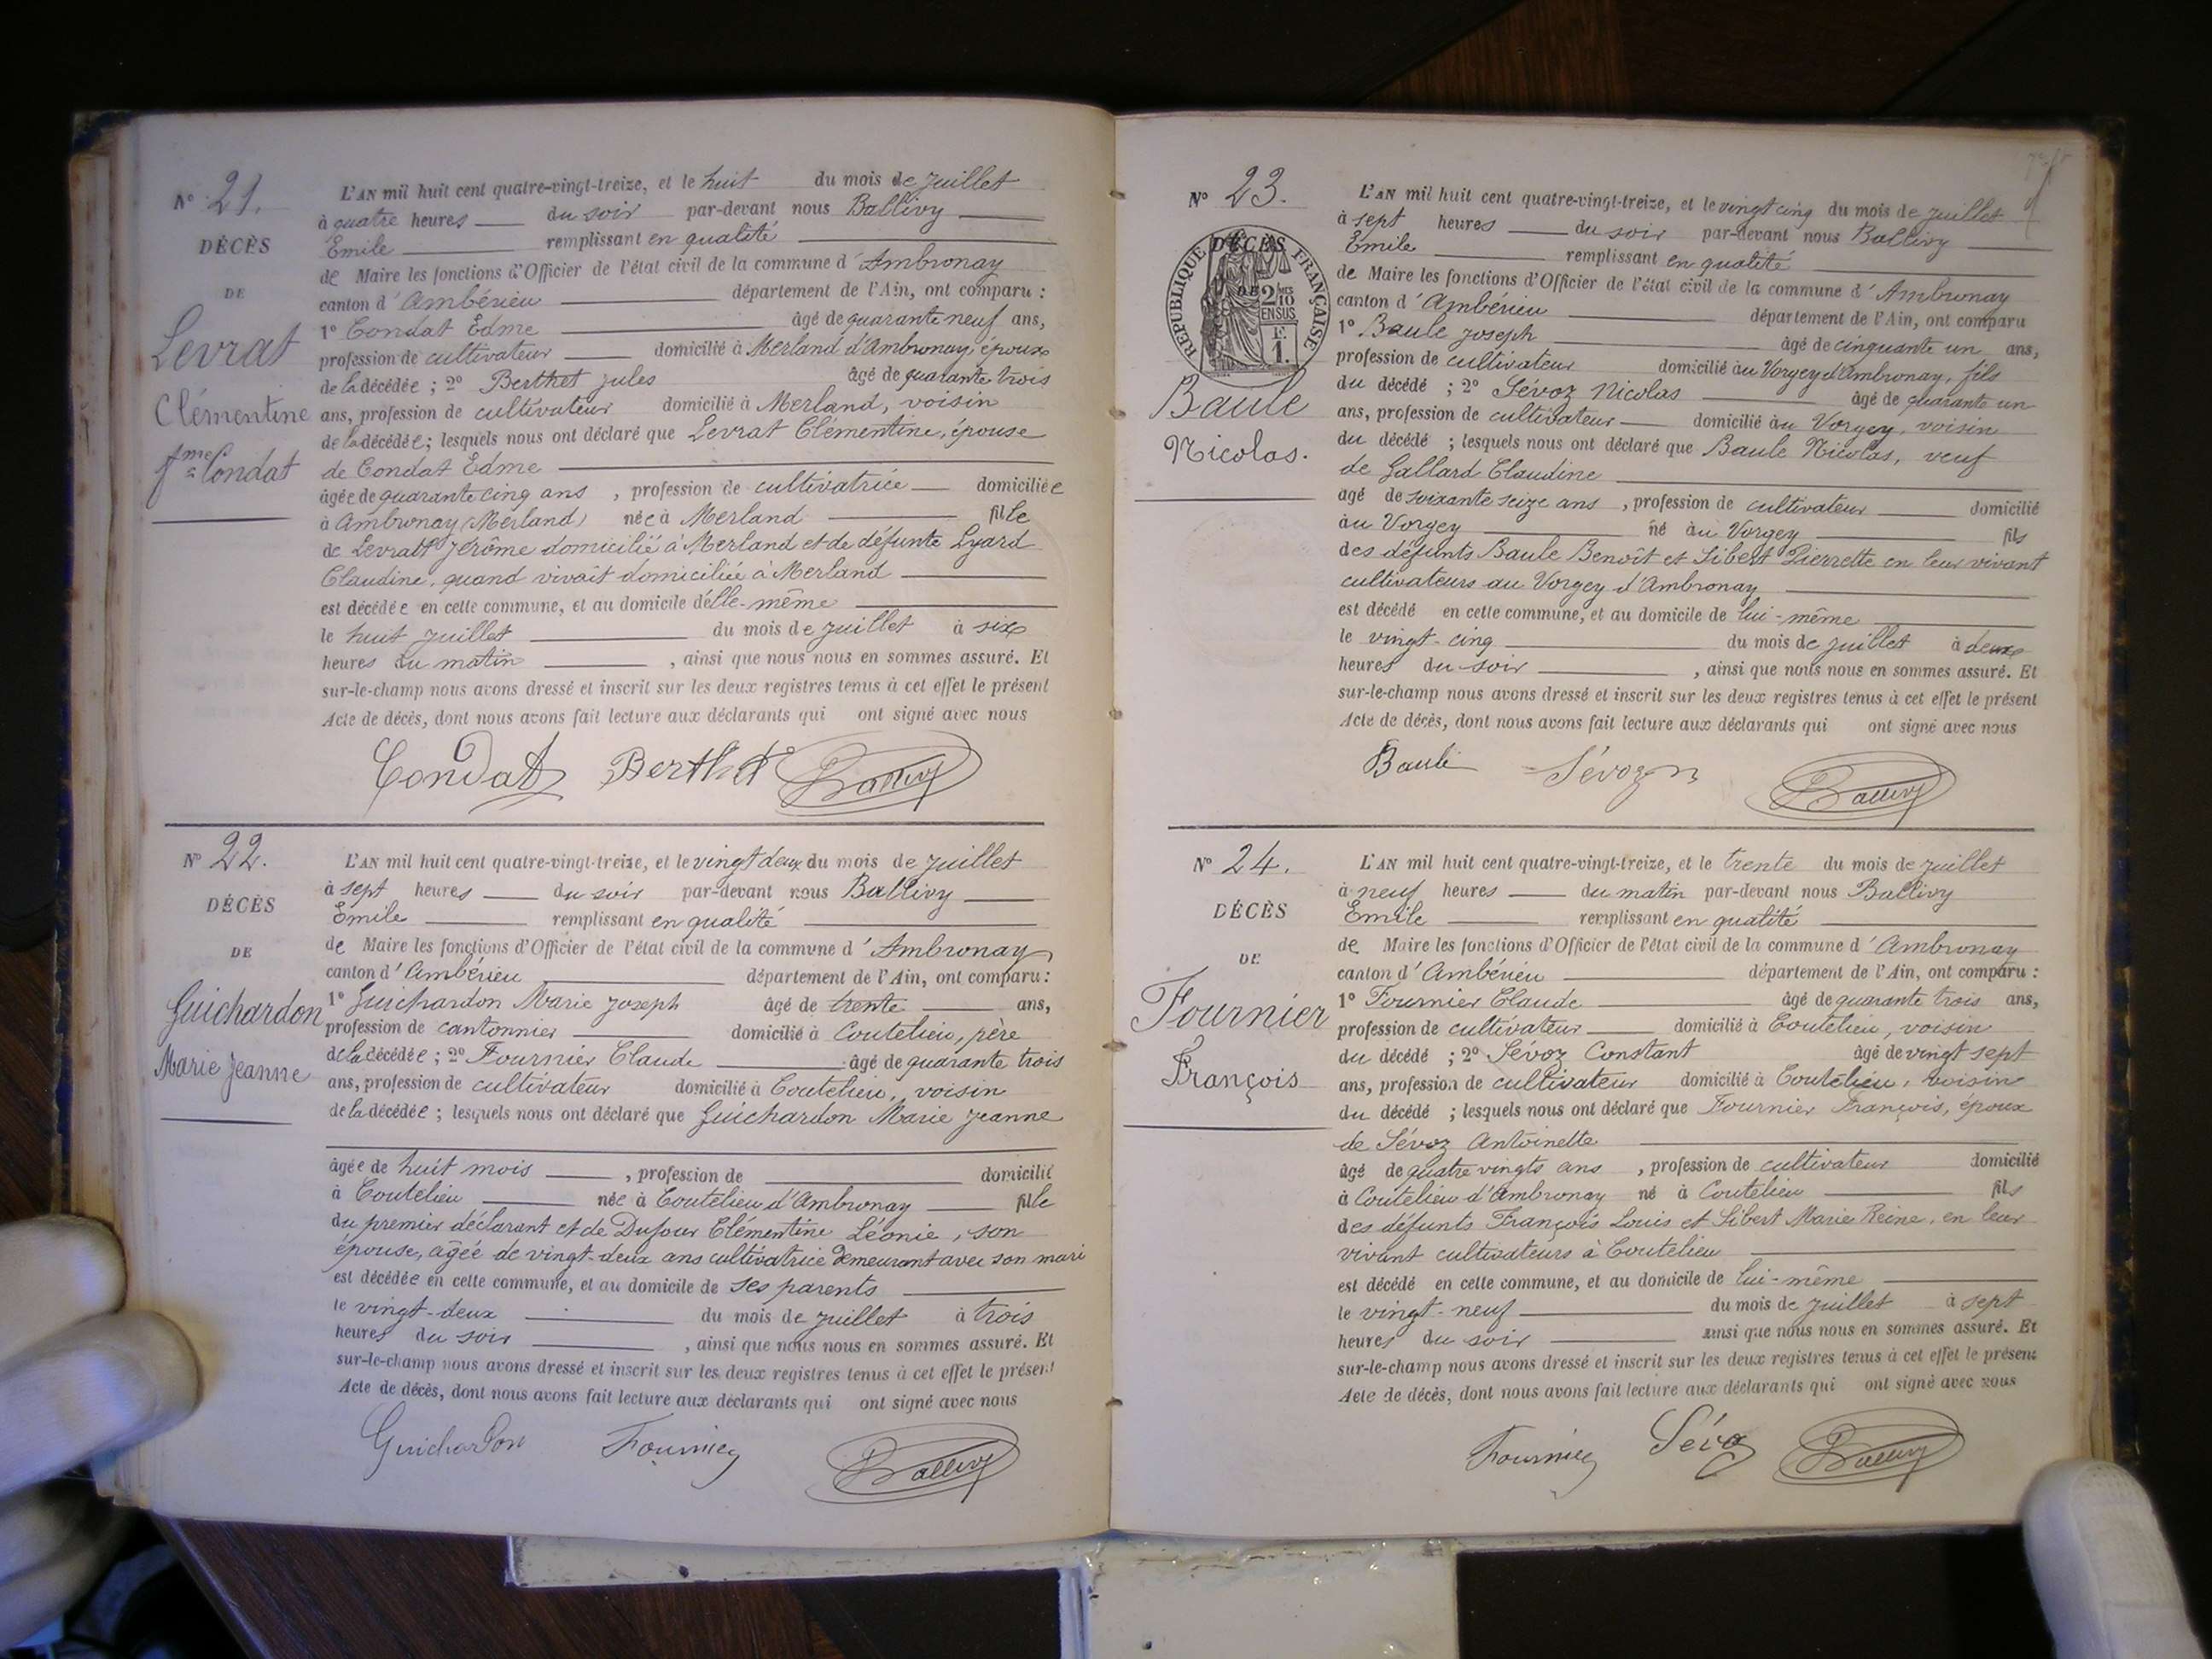 N° 21.
DÉCÈS
DE
Levrat
Clémentine
fme Condat
L'AN mil huit cent quatre-vingt-treize, et le huit du mois de juillet
à quatre heures du soir par-devant nous Ballivy
Emile remplissant en qualité
de Maire les fonctions d'Officier de l'état civil de la commune d'Ambronay
canton d'Ambérieu département de l'Ain, ont comparu :
1° Condat Edme âgé de quarante neuf ans,
profession de cultivateur domicilié à Merland d'Ambronay, époux
de la décédée ; 2° Berthet Jules âgé de quarante trois
ans, profession de cultivateur domicilié à Merland, voisin
de la décédée ; lesquels nous ont déclaré que Levrat Clémentine, épouse
de Condat Edme
âgée de quarante cinq ans , profession de cultivatrice domiciliée
à Ambronay (Merland) née à Merland fille
de Levrat Jérôme domicilié à Merland et de défunte Lyard
Claudine, quand vivait domiciliée à Merland
est décédée en cette commune, et au domicile d'elle-même
le huit juillet du mois de juillet à six
heures du matin , ainsi que nous nous en sommes assuré. Et
sur-le-champ nous avons dressé et inscrit sur les deux registres tenus à cet effet le présent
Acte de décès, dont nous avons fait lecture aux déclarants qui ont signé avec nous
Condat Berthet Ballivy
N° 22.
DÉCÈS
DE
Guichardon
Marie Jeanne
L'AN mil huit cent quatre-vingt-treize, et le vingt deux du mois de juillet
à sept heures du soir par-devant nous Ballivy
Emile remplissant en qualité
de Maire les fonctions d'Officier de l'état civil de la commune d'Ambronay
canton d'Ambérieu département de l'Ain, ont comparu :
1° Guichardon Marie Joseph âgé de trente ans,
profession de cantonnier domicilié à Coutelieu, père
de la décédée ; 2° Fournier Claude âgé de quarante trois
ans, profession de cultivateur domicilié à Coutelieu, voisin
de la décédée ; lesquels nous ont déclaré que Guichardon Marie Jeanne
âgée de huit mois , profession de domicilié
à Coutelieu née à Coutelieu d'Ambronay fille
du premier déclarant et de Dufour Clémentine Léonie, son
épouse, âgée de vingt-deux ans cultivatrice demeurant avec son mari
est décédée en cette commune, et au domicile de ses parents
le vingt-deux du mois de juillet à trois
heures du soir , ainsi que nous nous en sommes assuré. Et
sur-le-champ nous avons dressé et inscrit sur les deux registres tenus à cet effet le présent
Acte de décès, dont nous avons fait lecture aux déclarants qui ont signé avec nous
Guichardon Fournier Ballivy
N° 23.
DÉCÈS
DE
RÉPUBLIQUE FRANÇAISE
2/10
EN SUS
F.
1.
Baule
Nicolas.
L'AN mil huit cent quatre-vingt-treize, et le vingt cinq du mois de juillet
à sept heures du soir par-devant nous Ballivy
Emile remplissant en qualité
de Maire les fonctions d'Officier de l'état civil de la commune d'Ambronay
canton d'Ambérieu département de l'Ain, ont comparu
1° Baule Joseph âgé de cinquante un ans,
profession de cultivateur domicilié au Vorgey d'Ambronay, fils
du décédé ; 2° Sévoz Nicolas âgé de quarante un
ans, profession de cultivateur domicilié au Vorgey, voisin
du décédé ; lesquels nous ont déclaré que Baule Nicolas, veuf
de Gallard Claudine
âgé de soixante seize ans , profession de cultivateur domicilié
au Vorgey né au Vorgey fils
des défunts Baule Benoît et Sibert Pierrette en leur vivant
cultivateurs au Vorgey d'Ambronay
est décédé en cette commune, et au domicile de lui-même
le vingt-cinq du mois de juillet à deux
heures du soir , ainsi que nous nous en sommes assuré. Et
sur-le-champ nous avons dressé et inscrit sur les deux registres tenus à cet effet le présent
Acte de décès, dont nous avons fait lecture aux déclarants qui ont signé avec nous
Baule Sévoz n Ballivy
N° 24.
DÉCÈS
DE
Fournier
François
L'AN mil huit cent quatre-vingt-treize, et le trente du mois de juillet
à neuf heures du matin par-devant nous Ballivy
Emile remplissant en qualité
de Maire les fonctions d'Officier de l'état civil de la commune d'Ambronay
canton d'Ambérieu département de l'Ain, ont comparu :
1° Fournier Claude âgé de quarante trois ans,
profession de cultivateur domicilié à Coutelieu, voisin
du décédé ; 2° Sévoz Constant âgé de vingt sept
ans, profession de cultivateur domicilié à Coutelieu, voisin
du décédé ; lesquels nous ont déclaré que Fournier François, époux
de Sévoz Antoinette
âgé de quatre vingts ans , profession de cultivateur domicilié
à Coutelieu d'Ambronay né à Coutelieu fils
des défunts François Louis et Sibert Marie Reine, en leur
vivant cultivateurs à Coutelieu
est décédé en cette commune, et au domicile de lui-même
le vingt-neuf du mois de juillet à sept
heures du soir ainsi que nous nous en sommes assuré. Et
sur-le-champ nous avons dressé et inscrit sur les deux registres tenus à cet effet le présent
Acte de décès, dont nous avons fait lecture aux déclarants qui ont signé avec nous
Fournier Sévoz Ballivy